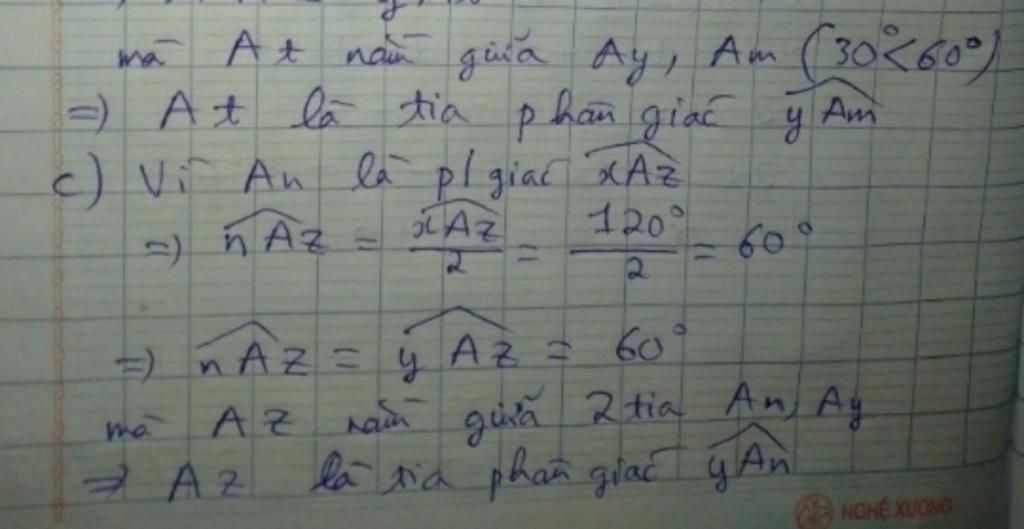 mà At nằm giữa Ay, Am (30°<60°)
=) At là tia phân giác yAm
c) Vì An là p/giác xAz
=) nAz = xAz/2 = 120°/2 = 60°
=) nAz = yAz = 60°
mà Az nằm giữa 2 tia An, Ay
=> Az là tia phân giác yAn
NGHÊ XUONG